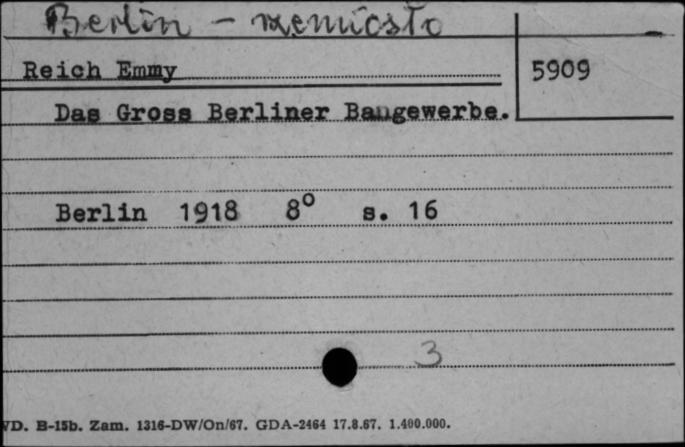 Berlin - rzemiosło
Reich Emmy
5909
Das Gross Berliner Baugewerbe.
Berlin 1918 8° s. 16
3
VD. B-15b. Zam. 1316-DW/On/67. GDA-2464 17.8.67. 1.400.000.